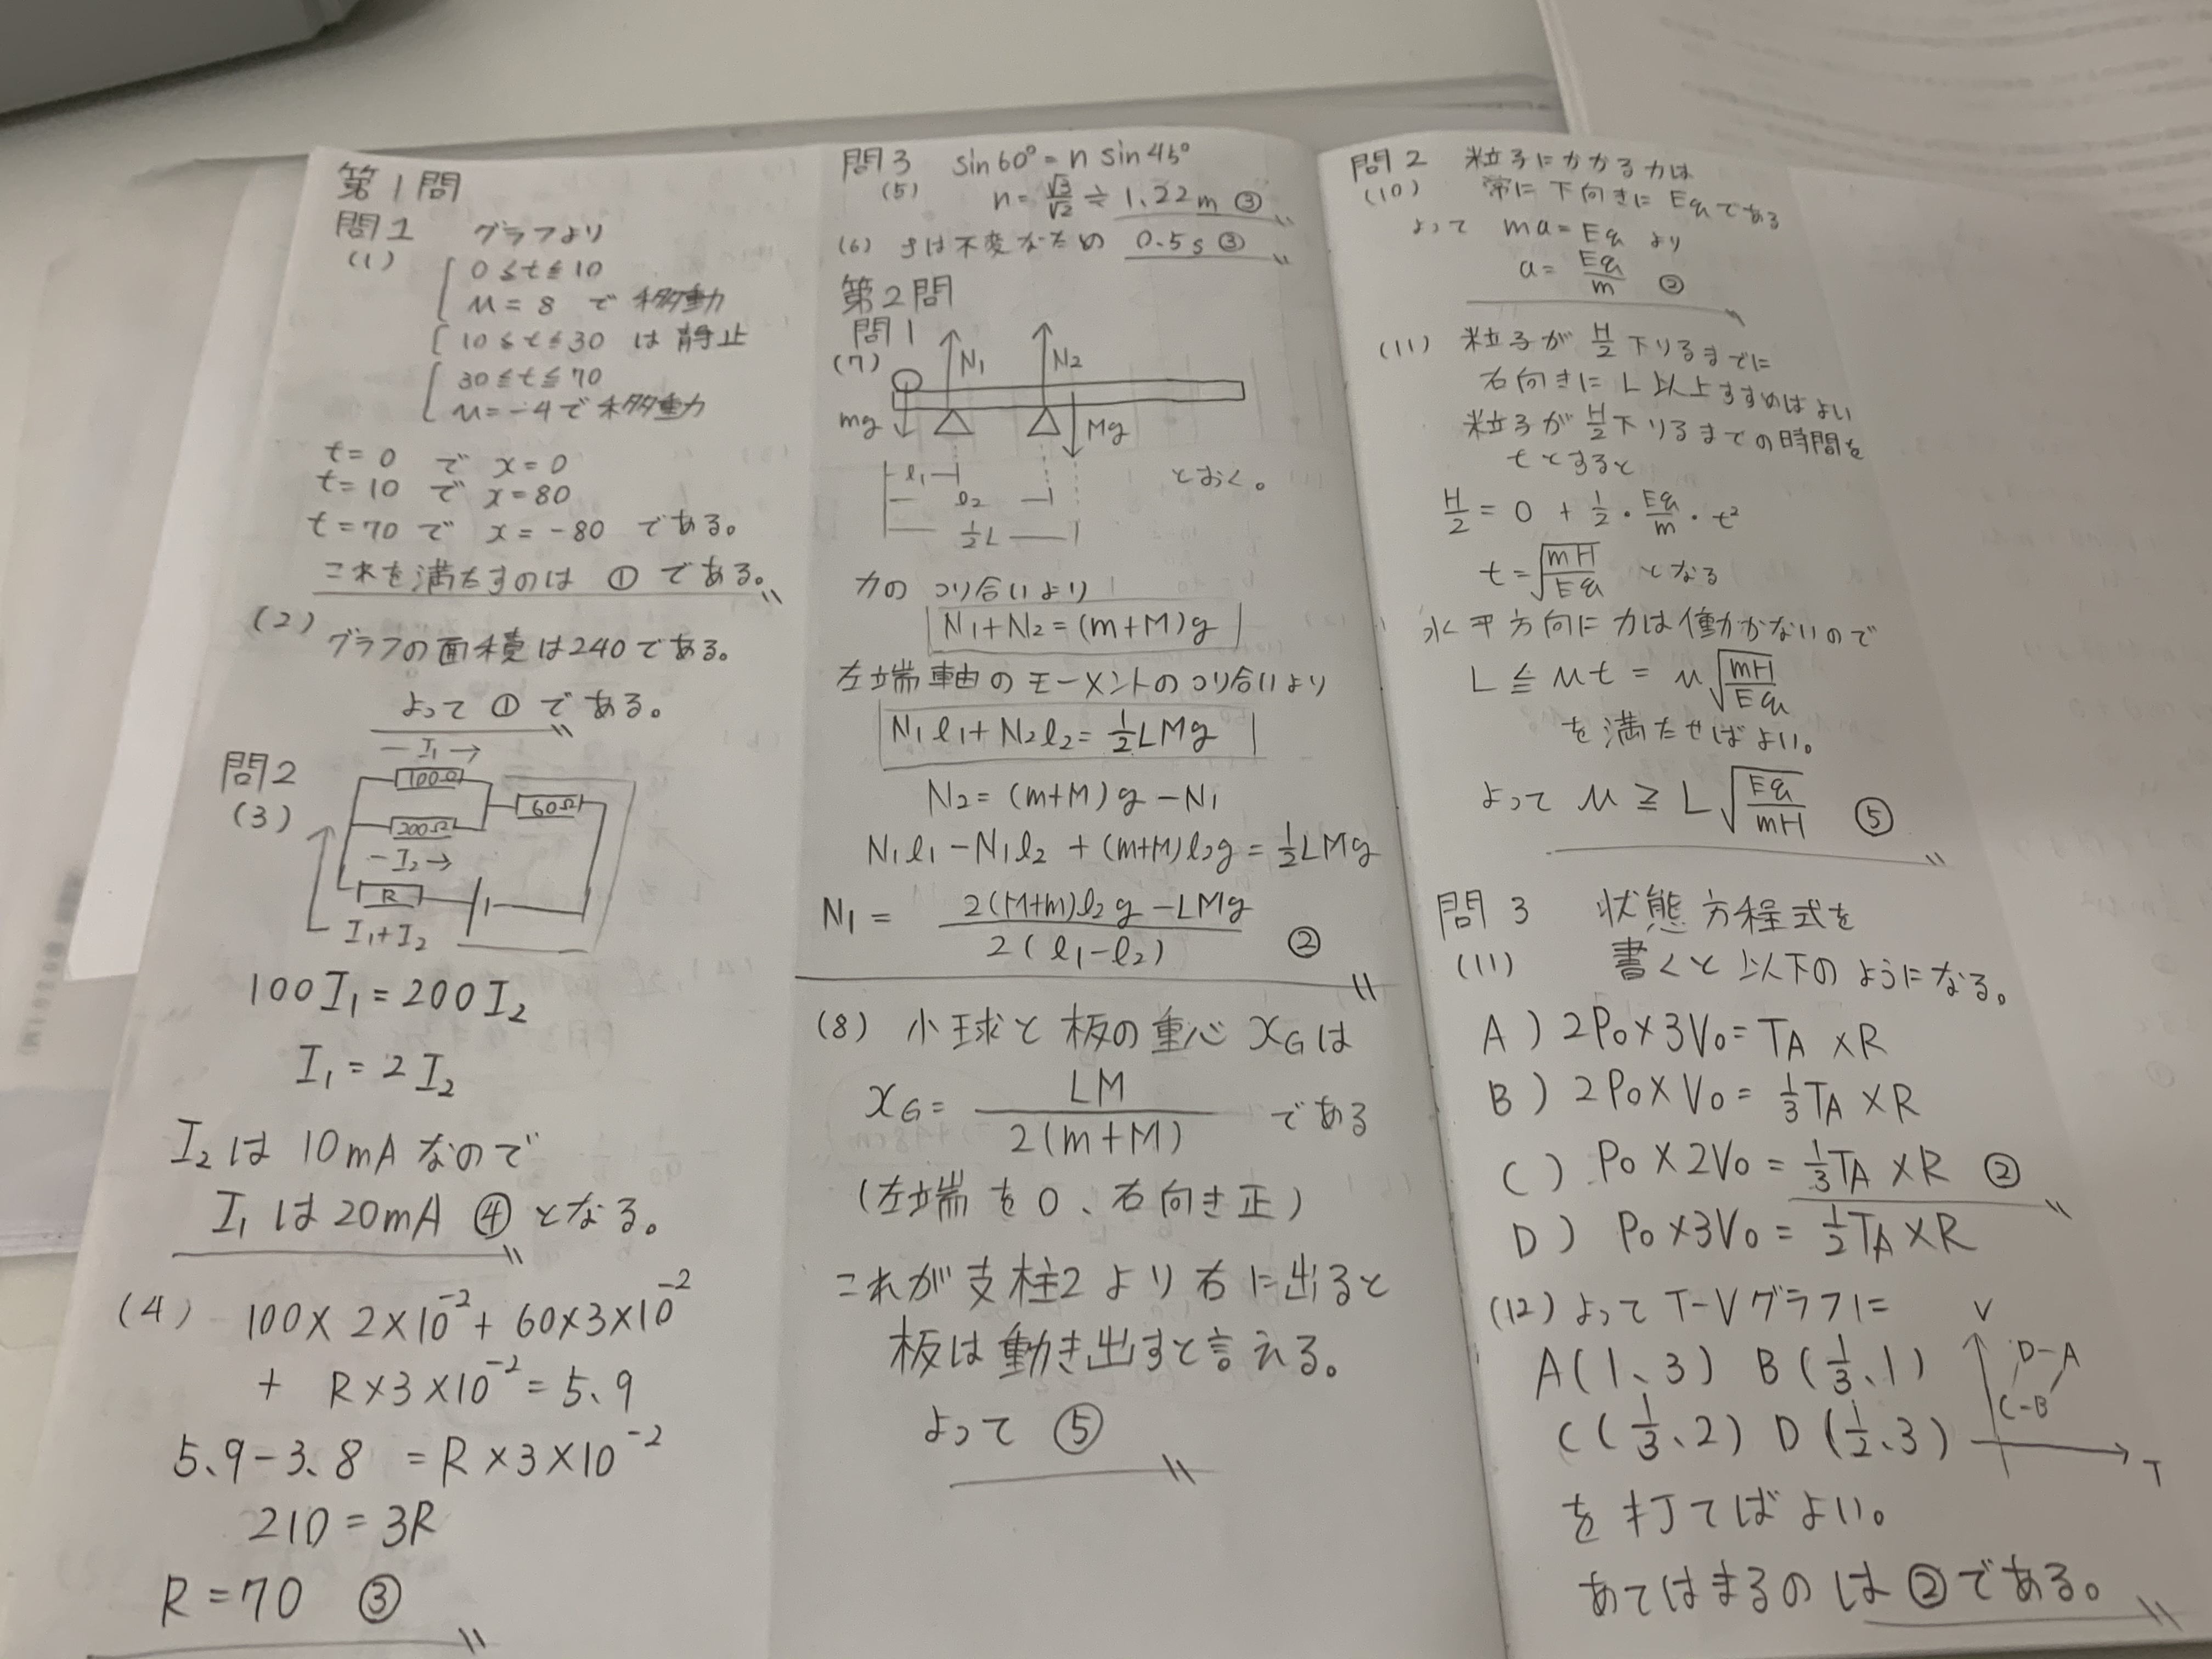 第1問
問1 グラフより
(1) 0≦t≦10
u=8 で移動
10≦t≦30 は静止
30≦t≦70
u=-4で移動
t=0 で x=0
t=10 で x=80
t=70 で x=-80 である。
これを満たすのは ① である。
(2) グラフの面積は240である。
よって ① である。
問2
(3)
I₁ →
100Ω
60Ω
200Ω
I₂ →
R
I₁+I₂
100I₁=200I₂
I₁=2I₂
I₂は 10mAなので
I₁は20mA ④となる。
(4) 100×2×10⁻²+60×3×10⁻²
+ R×3×10⁻²=5.9
5.9-3.8 =R×3×10⁻²
210=3R
R=70 ③
問3 sin60°=n sin45°
(5) n=√3/√2≒1.22m ③
(6) fは不変なため 0.5s ③
第2問
問1
(7)
N₁ N₂
mg Mg
l₁
l₂
½L
とおく。
力のつり合いより
N₁+N₂=(m+M)g
左端軸のモーメントのつり合いより
N₁l₁+N₂l₂=½LMg
N₂=(m+M)g-N₁
N₁l₁-N₁l₂+(m+M)l₂g=½LMg
N₁= 2(M+m)l₂g-LMg / 2(l₁-l₂) ②
(8) 小球と板の重心 xGは
xG= LM / 2(m+M) である
(左端を0、右向き正)
これが支柱2より右に出ると
板は動き出すと言える。
よって ⑤
問2 粒子にかかる力は
(10) 常に下向きにEqである
よって ma=Eq より
a=Eq/m ②
(11) 粒子がH/2下りるまでに
右向きにL以上すすめばよい
粒子がH/2下りるまでの時間を
tとすると
H/2=0+½・Eq/m・t²
t=√(mH/Eq) となる
水平方向に力は働かないので
L≦ut=u√(mH/Eq)
を満たせばよい。
よって u≧L√(Eq/mH) ⑤
問3 状態方程式を
(11) 書くと以下のようになる。
A) 2P₀×3V₀=TA×R
B) 2P₀×V₀=⅓TA×R
C) P₀×2V₀=⅓TA×R ②
D) P₀×3V₀=½TA×R
(12) よってT-Vグラフに
A(1、3) B(⅓、1)
C(⅓、2) D(½、3)
V
D-A
C-B
T
を打てばよい。
あてはまるのは②である。